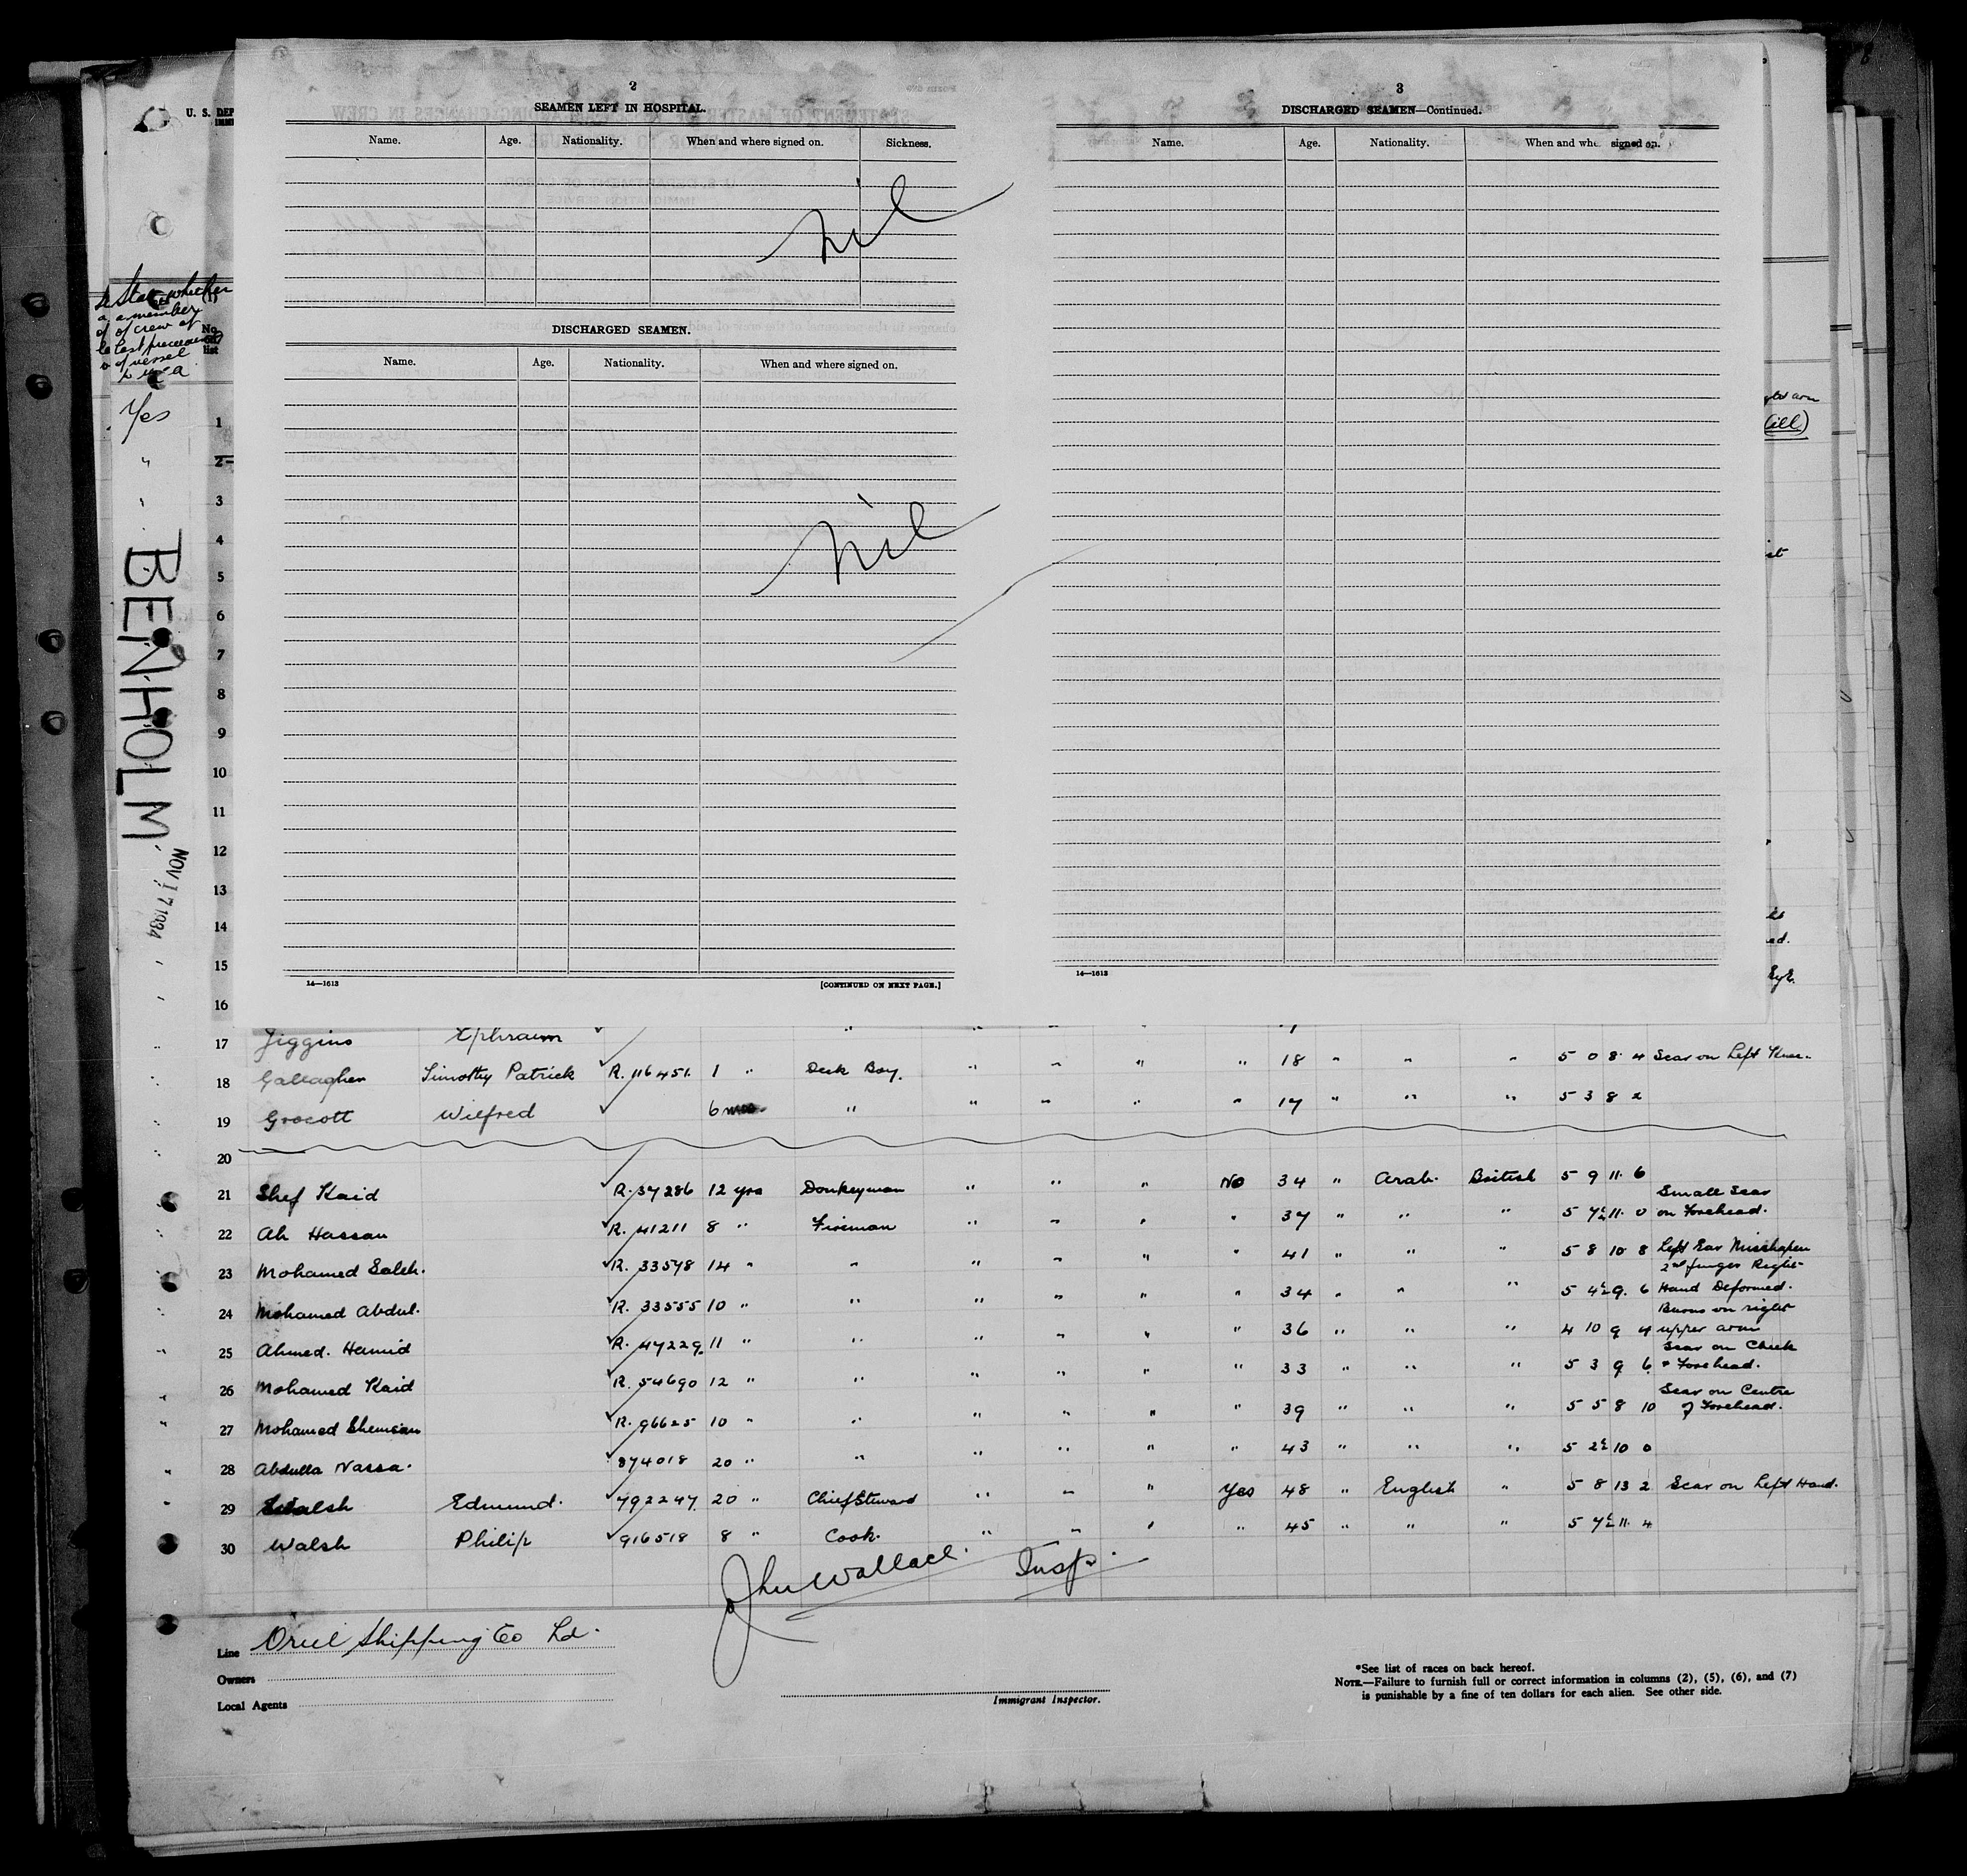 2
SEAMEN LEFT IN HOSPITAL.
Name. Age. Nationality. When and where signed on. Sickness.
Nil
DISCHARGED SEAMEN.
Name. Age. Nationality. When and where signed on.
Nil
14—1613 [CONTINUED ON NEXT PAGE.]
3
DISCHARGED SEAMEN—Continued.
Name. Age. Nationality. When and whe signed on.
14—1613
U. S. DEP
IMMI
State whether
a member
of crew of
last
vessel
(1)
No.
on
list
Yes
"
"
BENHOLM
NOV 17 1934
1
2
3
4
5
6
7
8
9
10
11
12
13
14
15
16
17 Jiggins Ephraim
18 Gallagher Timothy Patrick R. 116451. 1 " Deck Boy. " " " " 18 " " " 5 0 8 4 Scar on Left Knee.
19 Grocott Wilfred 6 mos. " " " " " 17 " " " 5 3 8 2
20
21 Shef Kaid R. 37286 12 yrs Donkeyman " " " No 34 " Arab. British 5 9 11 6
22 Ali Hassan R. 41211 8 " Fireman " " " " 37 " " " 5 7½ 11 0 Small Scar on Forehead.
23 Mohamed Saleh. R. 33578 14 " " " " " " 41 " " " 5 8 10 8 Left Ear Misshapen
24 Mohamed Abdul. R. 33555 10 " " " " " " 34 " " " 5 4½ 9 6 2nd finger Right Hand Deformed.
25 Ahmed. Hamid R. 47229 11 " " " " " " 36 " " " 4 10 9 4 Burns on right upper arm
26 Mohamed Kaid R. 54690 12 " " " " " " 33 " " " 5 3 9 6 Scar on Cheek & Forehead.
27 Mohamed Shemsan R. 96625 10 " " " " " " 39 " " " 5 5 8 10 Scar on Centre of Forehead.
28 Abdulla Nassa. 874018 20 " " " " " " 43 " " " 5 2½ 10 0
29 Walsh Edmund. 792247 20 " Chief Steward " " " Yes 48 " English " 5 8 13 2 Scar on Left Hand.
30 Walsh Philip 916518 8 " Cook. " " " " 45 " " " 5 7½ 11 4
John Wallace. Insp.
Line Oriel Shipping Co Ld.
Owners
Local Agents
Immigrant Inspector.
*See list of races on back hereof.
NOTE.—Failure to furnish full or correct information in columns (2), (5), (6), and (7)
is punishable by a fine of ten dollars for each alien. See other side.